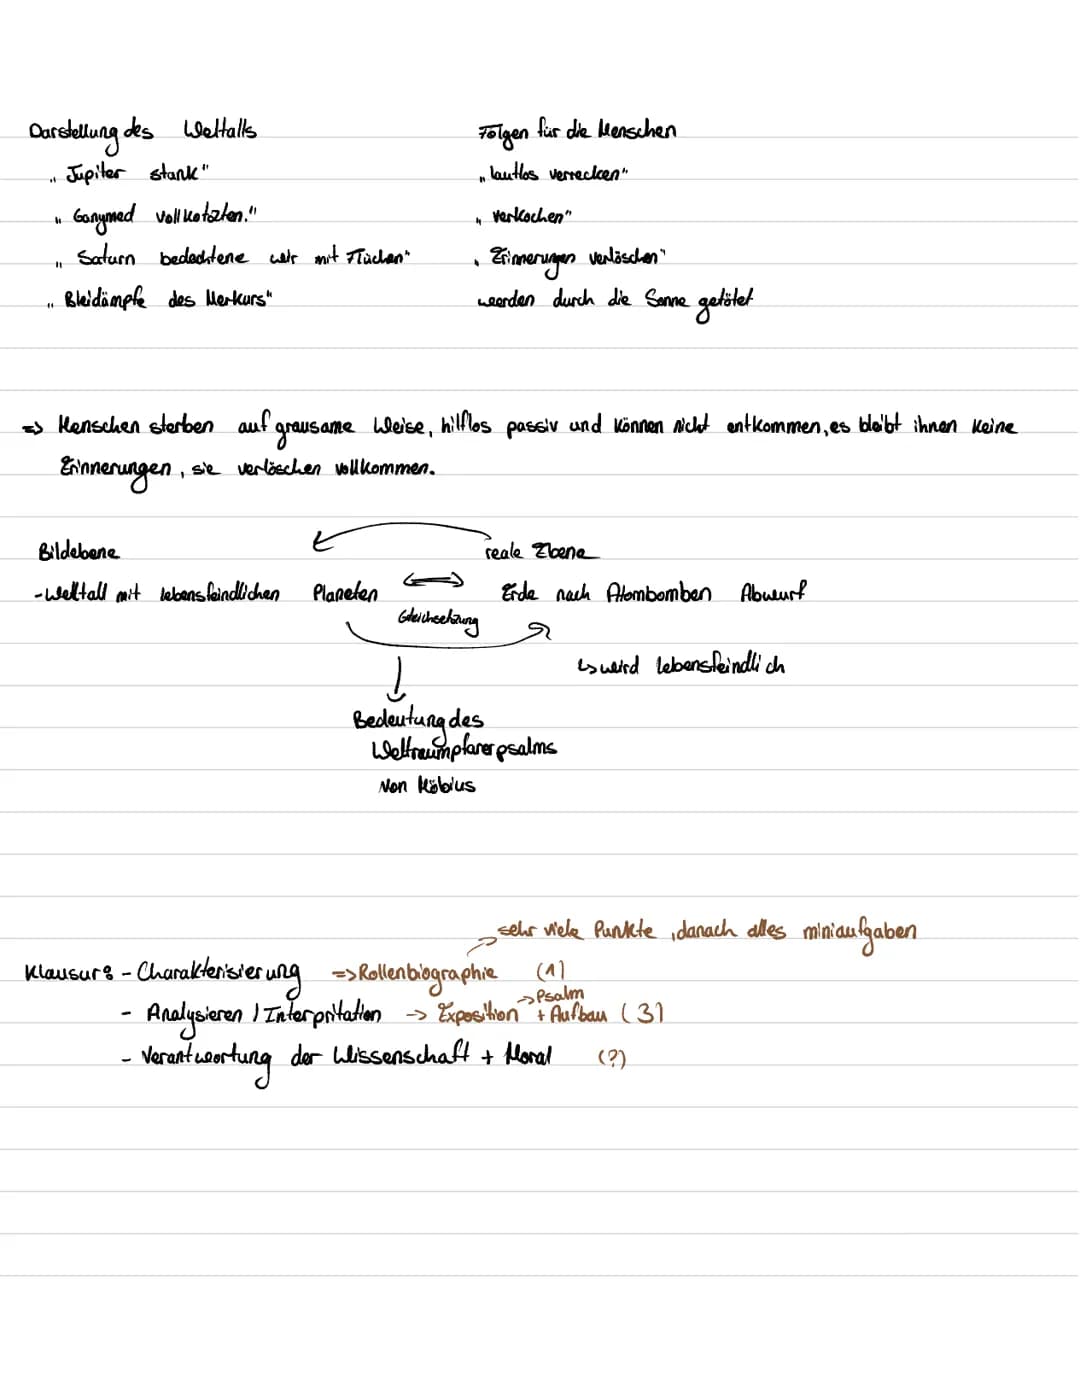 Darstellung des Weltalls
„Jupiter stank"
„Ganymed vollkotzten."
„Saturn bedachtene wir mit Flüchen"
„Bleidämpfe des Merkurs"
Folgen für die Menschen
„lautlos verrecken"
„verkochen"
„Erinnerungen verlöschen"
werden durch die Sonne getötet
=> Menschen sterben auf grausame Weise, hilflos passiv und können nicht entkommen, es bleibt ihnen keine
Erinnerungen, sie verlöschen vollkommen.
Bildebene
reale Ebene
-Weltall mit lebensfeindlichen Planeten <=> Erde nach Atombomben Abwurf
Gleichsetzung
↳ wird lebensfeindlich
Bedeutung des
Weltraumpfarerpsalms
Von Möbius
sehr viele Punkte, danach alles miniaufgaben
Klausur: - Charakterisierung => Rollenbiographie (1)
->Psalm
- Analysieren / Interpritation -> Exposition + Aufbau (3)
- Verantwortung der Wissenschaft + Moral (?)